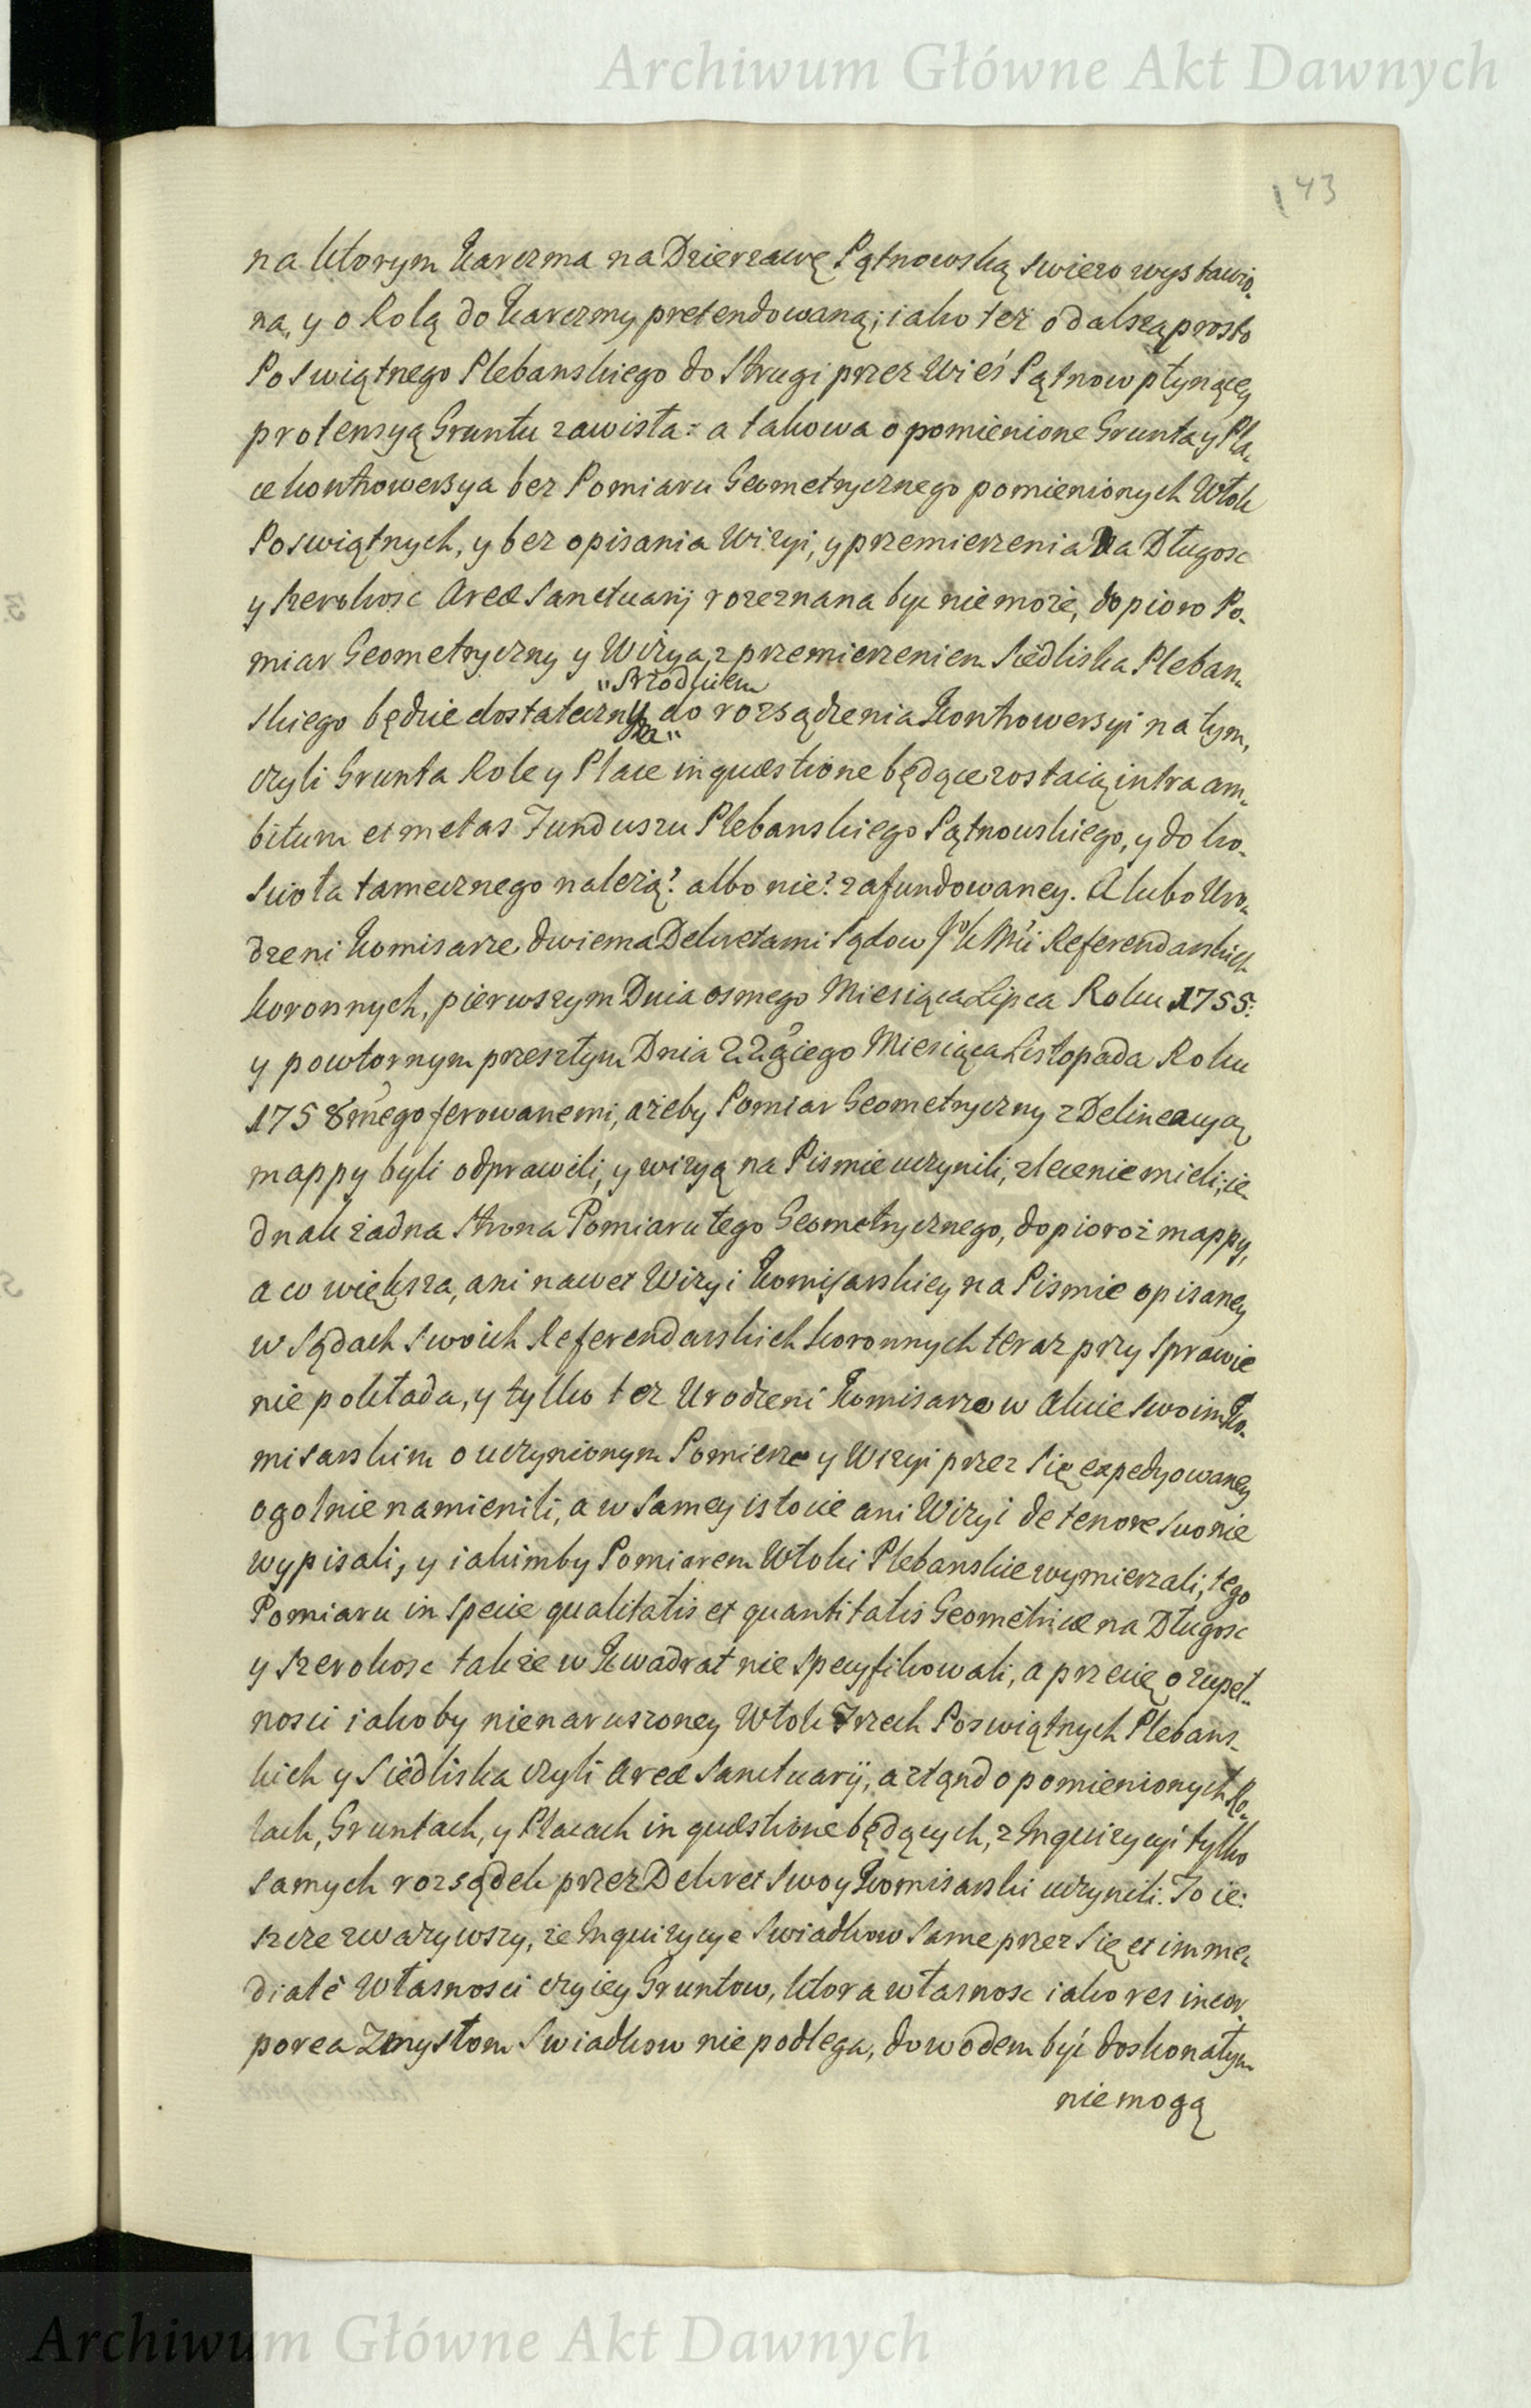 Archiwum Główne Akt Dawnych
143
na ktorym Karczma na Dzierzawę Pątnowską swiezo wystawio-
na, y o Rolą do Karczmy pretendowaną; iako też o dalszą prosto
Poswiątnego Plebanskiego do Strugi przez Wieś Pątnow płynącey
pretensyą Gruntu zawisła: a takowa o pomienione Grunta y Pla-
ce kontrowersya bez Pomiaru Geometrycznego pomienionych Włok
Poswiątnych, y bez opisania Wizyi, y przemierzenia na Długosc
y szerokosc Areæ Sanctuarij rozeznana być nie może, dopioro Po-
miar Geometryczny y Wizya, z przemierzeniem Siedliska Pleban-
"Srzodkiem
skiego będzie dostateczny do rozsądzenia Kontrowersyi na tym,
za"
czyli Grunta Role y Place in quæstione będące zostaią intra am-
bitum et metas Funduszu Plebanskiego Pątnowskiego, y do ko-
scioła tamecznego należą? albo nie? zafundowaney. A lubo Uro-
dzeni Komisarze dwiema Dekretami Sądow JK Mći Referendarskich
koronnych, pierwszym Dnia osmego Miesiąca Lipca Roku 1755:
y powtornym przeszłym Dnia 22giego Miesiąca Listopada Roku
1758mego ferowanemi, ażeby Pomiar Geometryczny z Delineacyą
mappy byli odprawili, y wizyą na Pismie uczynili, zlecenie mieli; ie-
dnak żadna strona Pomiaru tego Geometrycznego, dopioroż mappy,
a co większa, ani nawet Wizyi Komisarskiey na Pismie opisaney
w Sądach swoich Referendarskich koronnych teraz przy sprawie
nie pokłada, y tylko też Urodzeni Komisarze w Akcie swoim Ko-
misarskim o uczynionym Pomierze y Wizyi przez się expedyowaney
ogolnie namienili, a w samey istocie ani Wizyi de tenore suo nie
wypisali, y iakimby Pomiarem Włoki Plebanskie wymierzali, tego
Pomiaru in specie qualitatis et quantitatis Geometricæ na Długosc
y szerokosc także w Kwadrat nie specyfikowali, a przecię o zupeł-
nosci iakoby nienaruszoney Włok Trzech Poswiątnych Plebans-
kich y Siedliska czyli Areæ Sanctuarij, a ztąnd o pomienionych Ro-
lach, Gruntach, y Placach in quæstione będących, z Inquizycyi tylko
samych rozsądek przez Dekret swoy Komisarski uczynili. To ie-
szcze zwazywszy, że Inquizycye Swiadkow same przez się et imme-
diatè własnosci czyiey Gruntow, ktora własnosc iako res incor-
porea Zmysłom Swiadkow nie podlega, dowodem być doskonałym
nie mogą
Archiwum Główne Akt Dawnych